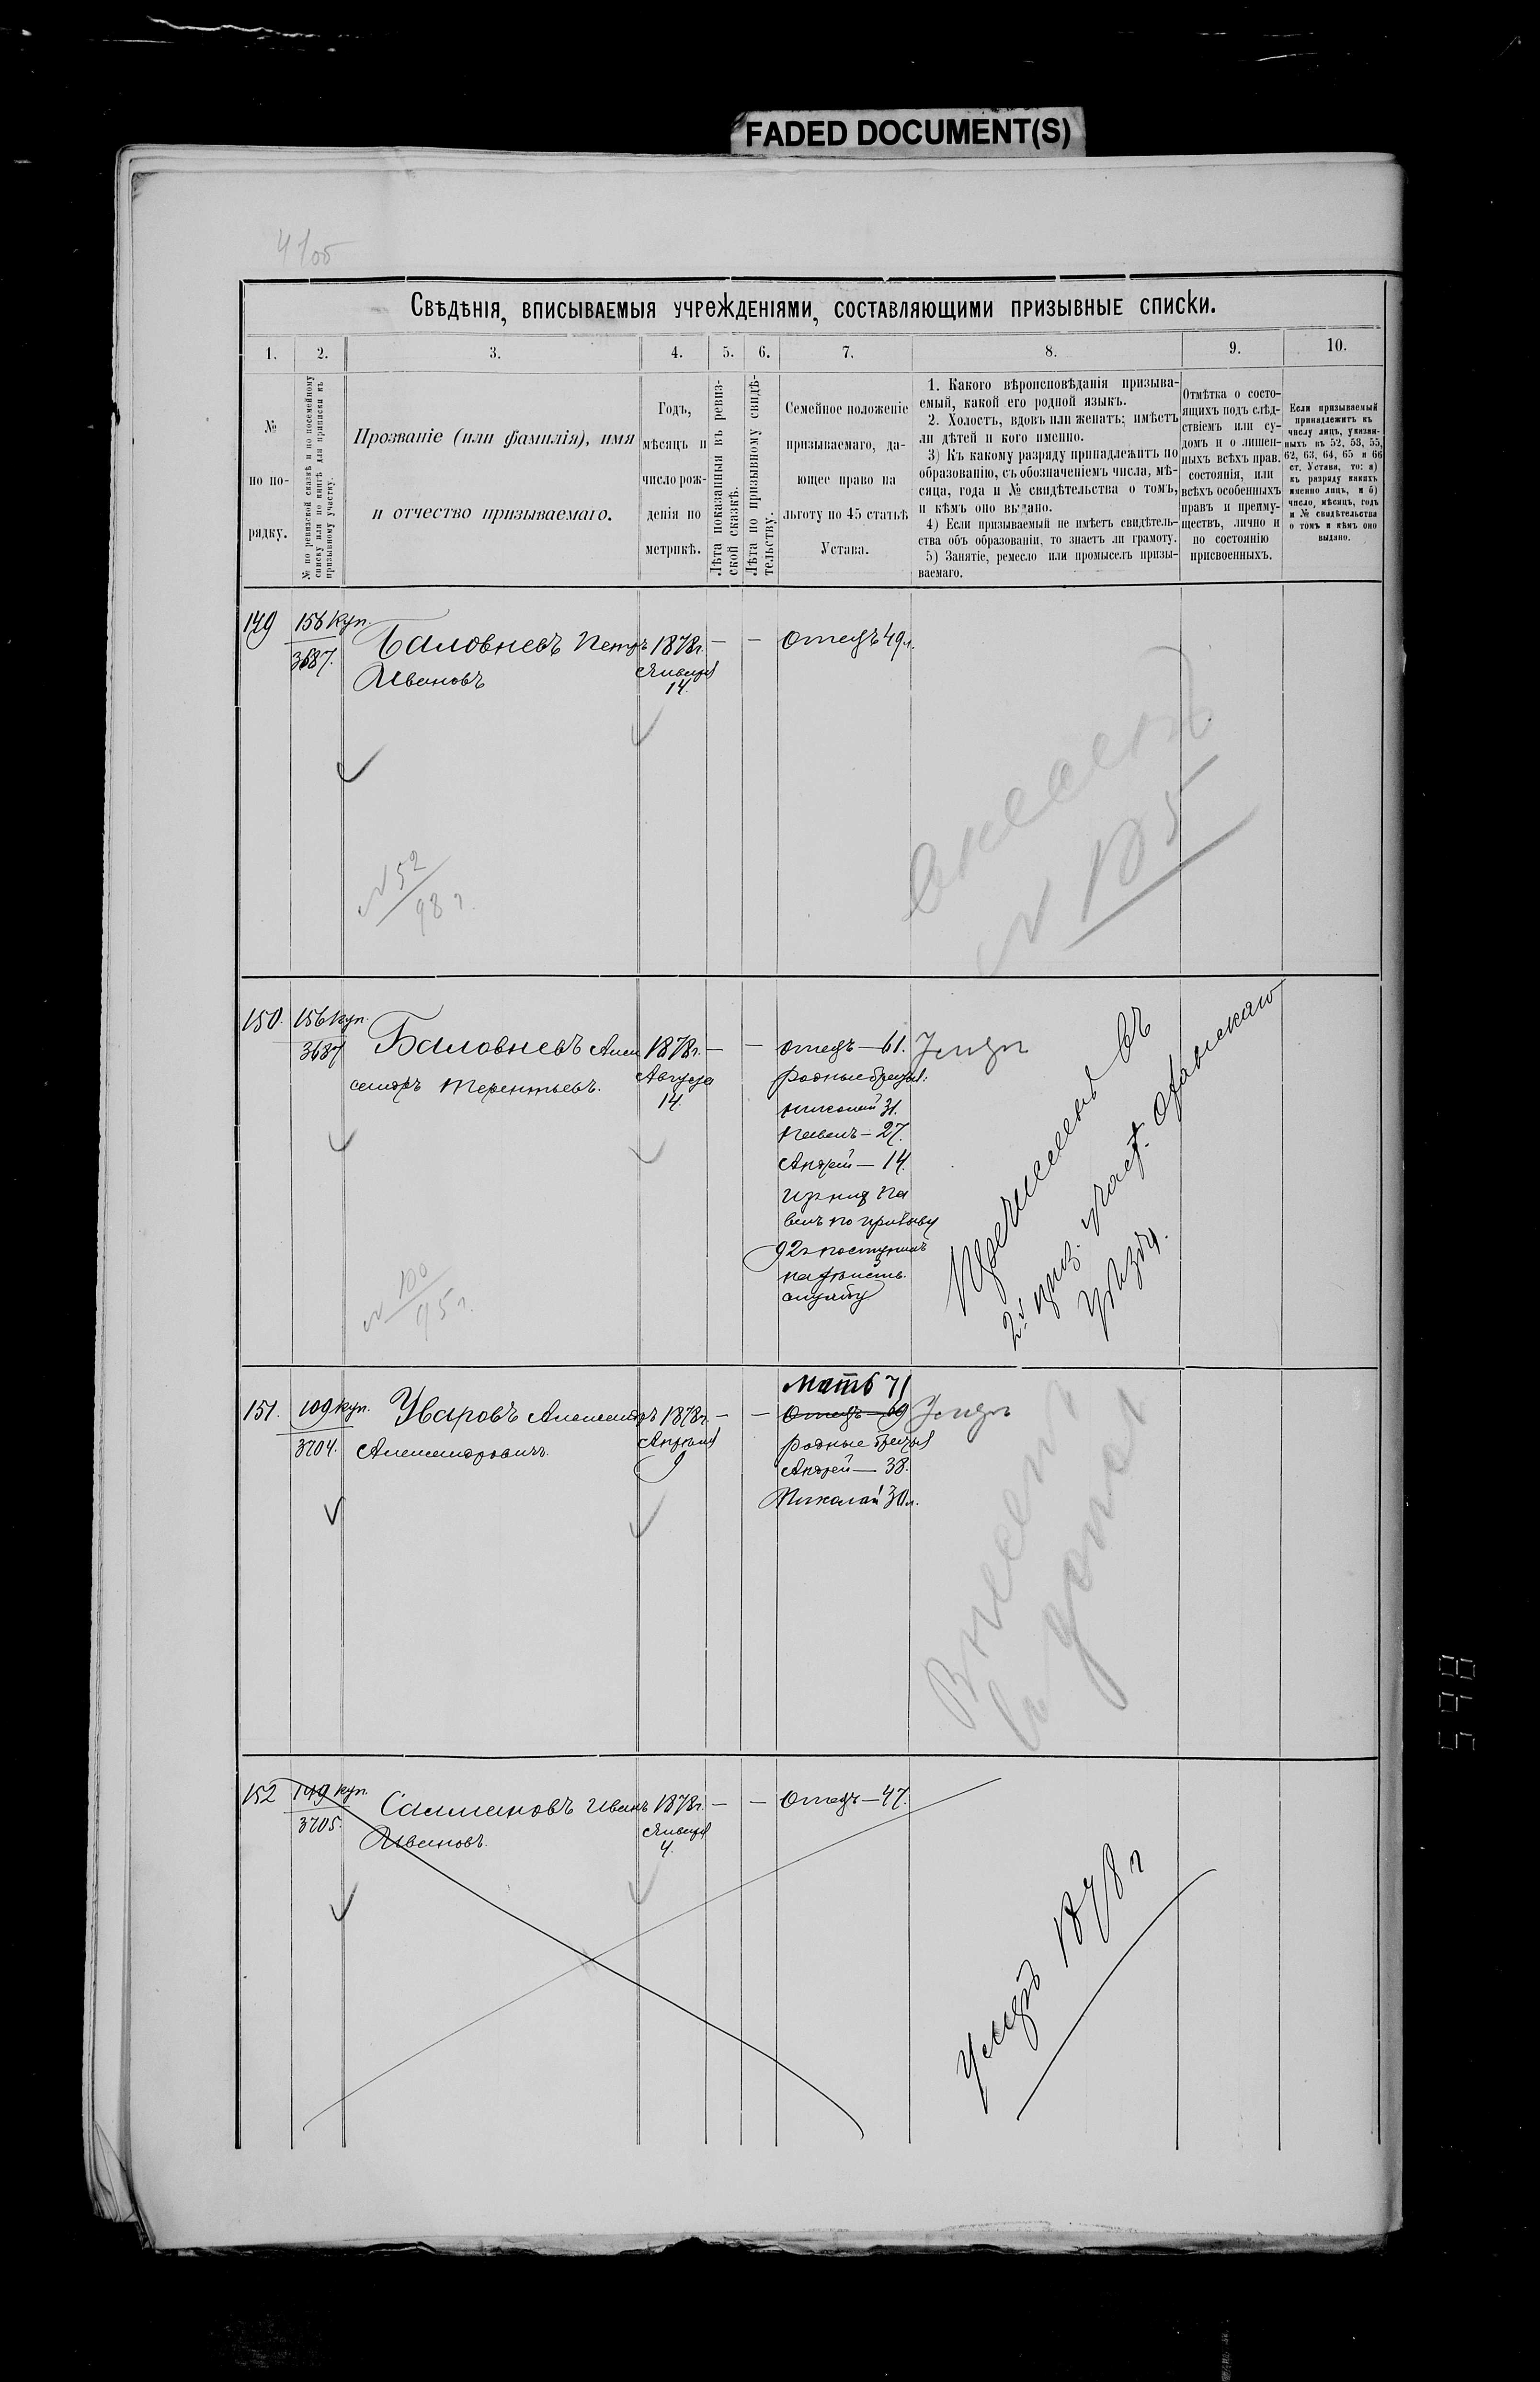 FADED DOCUMENT(S)
41об
Свѣдѣнія, вписываемыя учрежденіями, составляющими призывные списки.
1. 2. 3. 4. 5. 6. 7. 8. 9. 10.
№
по по-
рядку.
№ по ревизской сказкѣ и по посемейному
списку или по книгѣ для приписки къ
призывному участку.
Прозваніе (или фамилія), имя
и отчество призываемаго.
Годъ,
мѣсяцъ и
число рож-
денія по
метрикѣ.
Лѣта показанныя въ ревиз-
ской сказкѣ.
Лѣта по призывному свидѣ-
тельству.
Семейное положеніе
призываемаго, да-
ющее право на
льготу по 45 статьѣ
Устава.
1. Какого вѣроисповѣданія призыва-
емый, какой его родной языкъ.
2. Холостъ, вдовъ или женатъ; имѣетъ
ли дѣтей и кого именно.
3) Къ какому разряду принадлежитъ по
образованію, съ обозначеніемъ числа, мѣ-
сяца, года и № свидѣтельства о томъ,
и кѣмъ оно выдано.
4) Если призываемый не имѣетъ свидѣтель-
ства объ образованіи, то знаетъ ли грамоту.
5) Занятіе, ремесло или промыселъ призы-
ваемаго.
Отмѣтка о состо-
ящихъ подъ слѣд-
ствіемъ или су-
домъ и о лишен-
ныхъ всѣхъ прав.
состоянія, или
всѣхъ особенныхъ
правъ и преиму-
ществъ, лично и
по состоянію
присвоенныхъ.
Если призываемый
принадлежитъ къ
числу лицъ, указан-
ныхъ въ 52, 53, 55,
62, 63, 64, 65 и 66
ст. Устава, то: а)
къ разряду какихъ
именно лицъ, и б)
число, мѣсяцъ, годъ
и № свидѣтельства
о томъ и кѣмъ оно
выдано.
149 156 куп. Баловневъ Петръ 1878г. — — Отецъ 49 л.
3687. Ивановъ Января
14.
внесенъ
№ 105
№ 52
98 г.
150. 156 куп. Баловневъ Алек 1878г. — — отецъ — 61.
3687 сандръ Терентьевъ. Августа родные братья:
14. николай 31.
Павелъ — 27.
Андрей — 14.
изъ них Па
велъ по призыву
92г поступилъ
на действ.
службу
Перечисленъ въ
2й приз. участ.
уѣзда.
№ 100
95 г.
Мать 71
151. 109 куп. Уваровъ Александръ 1878г. — — Отецъ — 69
3704. Александровичъ. Апреля родные братья
9 Андрей — 38.
Николай 30 л.
Внесенъ
в допол
152 149 куп. Салмановъ Иванъ 1878г. — — Отецъ — 47.
3705. Ивановъ. Января
4.
умеръ 1878 г
598